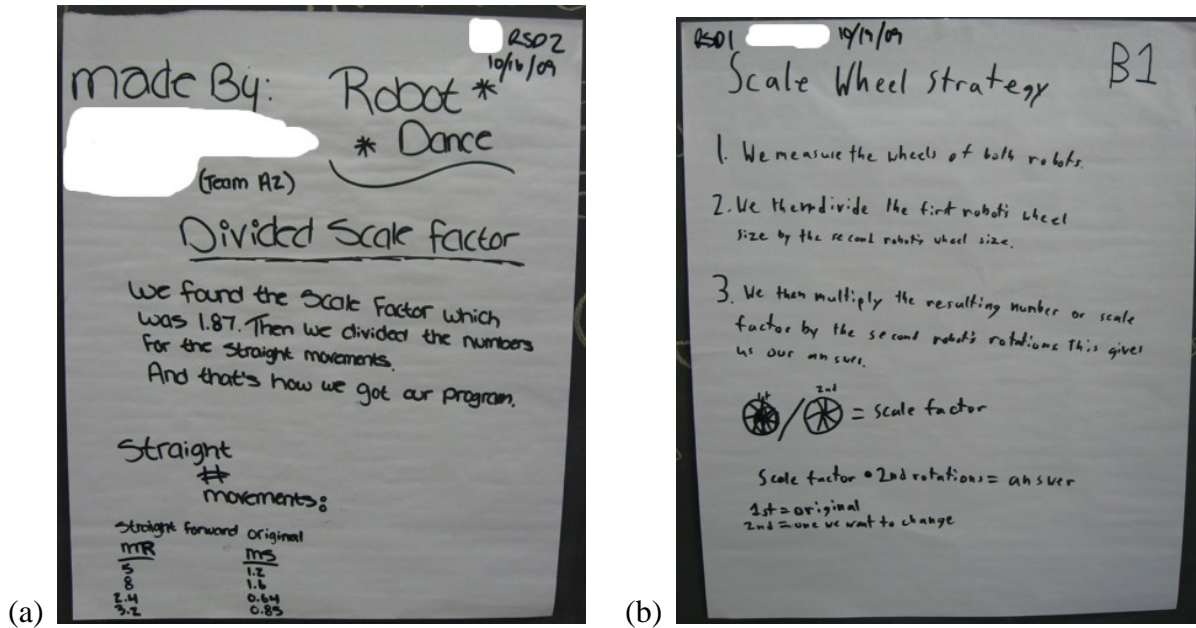 RSD2
10/16/09
made By:
Robot *
* Dance
(Team A2)
Divided Scale factor
We found the Scale Factor which
was 1.87. Then we divided the numbers
for the straight movements.
And that's how we got our program.
Straight
#
movements:
Straight forward original
MR ms
5 1.2
8 1.6
2.4 0.64
3.2 0.85
(a)
RSD1 10/19/09
B1
Scale Wheel Strategy
1. We measure the wheels of both robots.
2. We then divide the first robot's wheel
size by the second robot's wheel size.
3. We then multiply the resulting number or scale
factor by the second robot's rotations this gives
us our answer.
1st / 2nd = scale factor
Scale factor • 2nd rotations = answer
1st = original
2nd = one we want to change
(b)